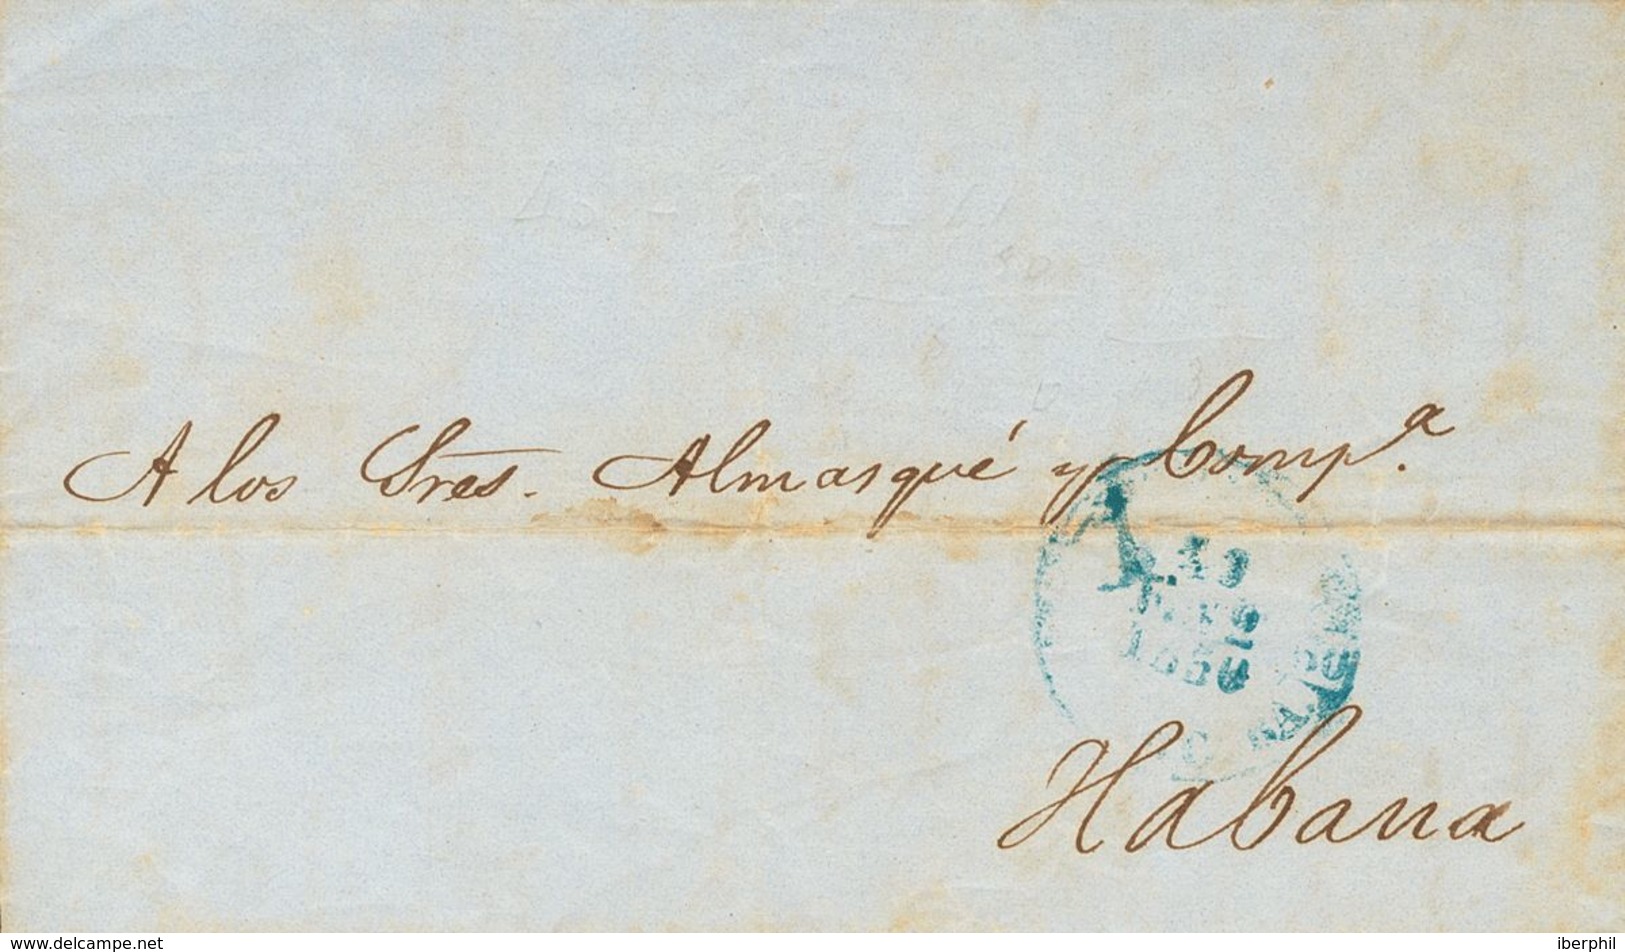 A los Sres. Almasqué y Comp.ª
1860
Habana
www.delcampe.net
iberphil